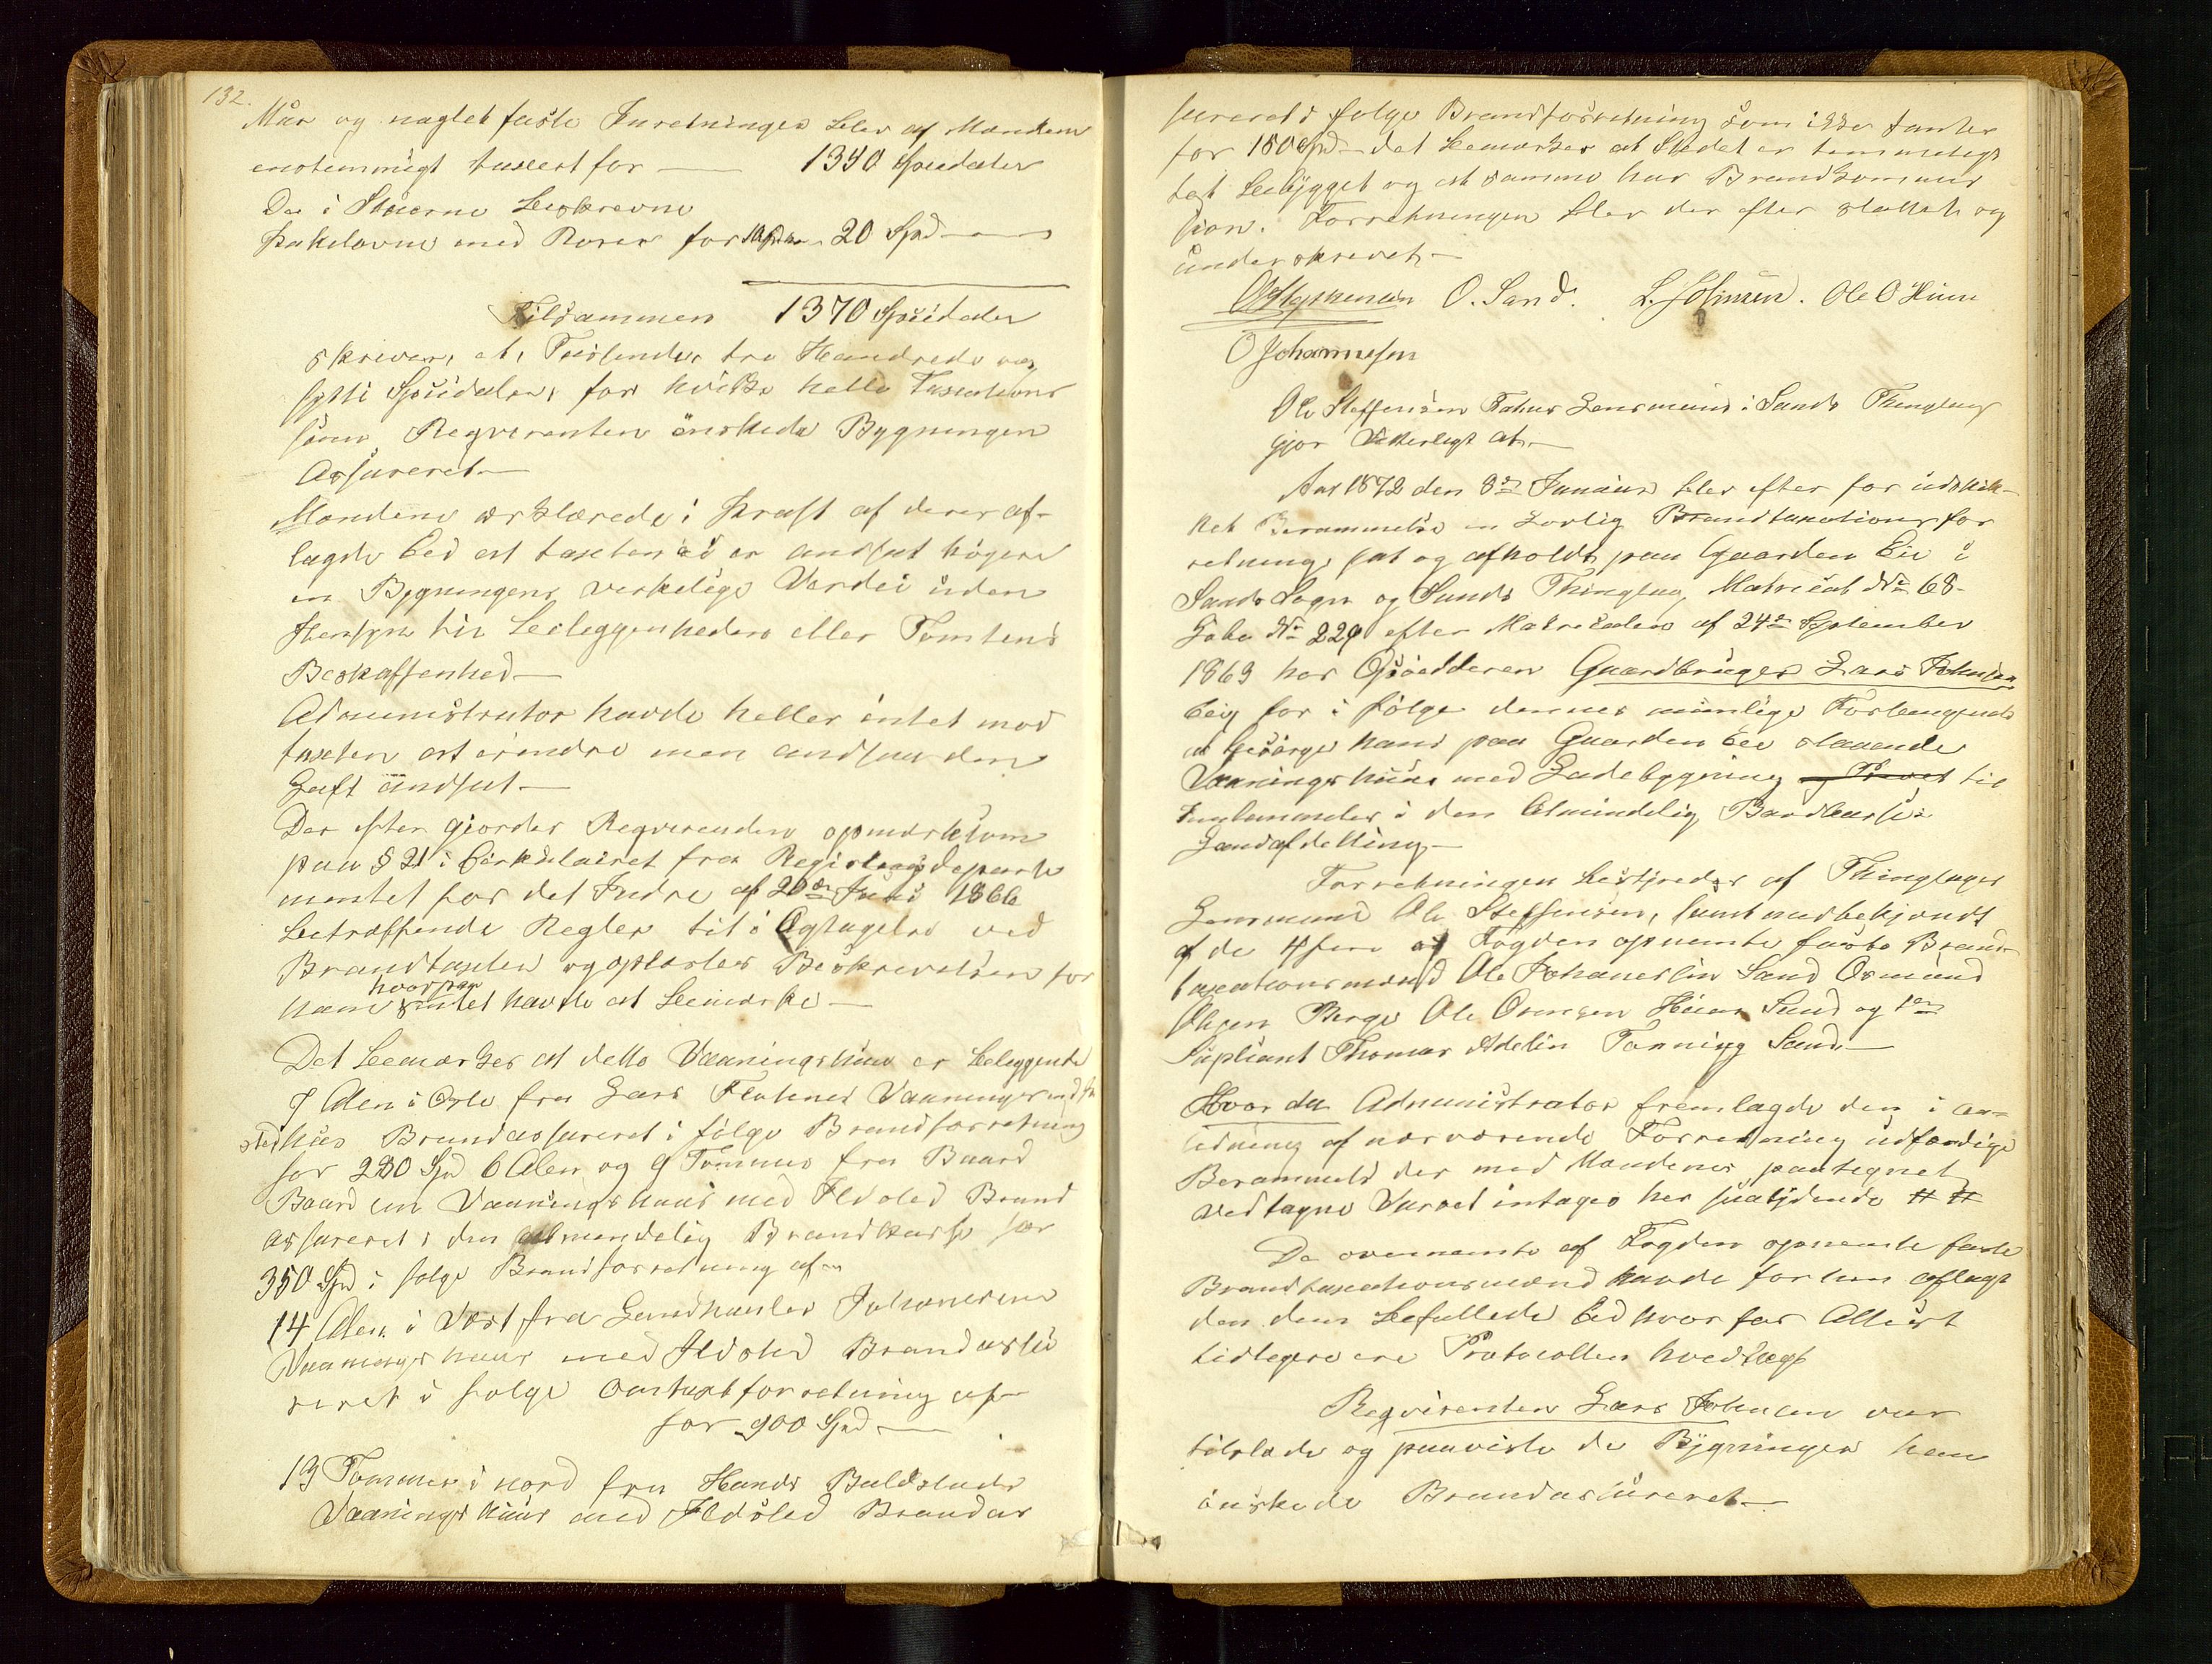 132.
Mur og naglet faste Inretninger blev af Mændene
enstemmigt taxert for — 1350 Speciedaler
De i Stuerne beskrevne
Kakelovne med Rører for 20 Spd —
Tilsammen 1370 Speciedaler
skriver, et, Tusende, tre Hundrede og
sytti Speciedaler, for hvilke hele Taxations
sum Reqvirenten önskede Bygningen
Assureret —
Mændene erklærede i Kraft af deres af-
lagde Eed at taxten ei er andsat högere
en Bygningens virkelige Værdi uden
Hensyn til Beleggenheden eller Tomtens
Beskaffenhed —
Administrator havde heller intet mod
taxten at erindre men andsaa den
Laft andsat —
Der efter gjordes Reqvirenden opmærksom
paa § 21 i Cirkulairet fra Regieringsdeparte
mentet for det Indre af 20de Juni 1866
betræffende Regler til i Agtagelse ved
Brandtaxten og oplæstes Beskrivelsen for
ham hvorpaa intet havde at bemærke —
Det bemærkes at dette Vaaningshuus er beleggende
7 Alen i Öst fra Lars Vaaninges med Ild
sted huus Brandassureret i fölge Brandforretning
for 230 Spd 6 Alen og 9 Tommer fra Baard
Baardsen Vaaningshuus med Ildsted Brand
assureret i den almindelig Brandkasse for
350 Spd i fölge Brandforretning af —
14 Alen i Vest fra Landhanler Johannesens
Vaaningshuus med Ildsted Brandassu
reret i fölge Omtaxtforretning af —
for 900 Spd —
13 Tommer i nord fra Hands
Vaaningshuus med Ildsted Brandas
sureret i fölge Brandforretning som ikke
for 150 Spd — det bemærkes at Stedet er temmeligt
tet bebÿgget og at samme har Brandkommis
sion. Forretningen blev der efter sluttet og
underskrevet —
O. Sand. L. Johnsen. Ole O Hiim
O Johannesen
Ole Steffensen Lensmand i Sands Thinglaug
Gjör Vitterligt at —
Aar 1872 den 8de Januar blev efter for udskik-
ket Berammelse en Lovlig Brandtaxationsfor
retning sat og afholdt paa Gaarden Eie i
Sands Sogn og Sands Thinglag Matricul No 68-
Löbe No 229 efter Matriculen af 24de September
1863 hos Opsidderen Gaardbruger Lars Johnsen
Eie for i fölge dennes mundlige Forlangende
at besörge hans paa Gaarden Eie staaende
Vaaningshuus med Ladebygning til
Indlemmelse i den Almindelig Brandkasse
Landafdelling —
Forretningen bestyredes af Thinglagets
Lensmand Ole Steffensen, samt medbetjendt
af de 4 fire af Fogden opnemte faste Brand
taxationsmænd Ole Johanesen Sand Osmund
Olsen Berge Ole Osmsen Hiim Sand og 1ste
Supliant Thomas Adelin Fanning Sand —
Hvor da Administrator fremlagde den i an-
ledning af nerværende Forretning udfærdige
Berammels der med Mændenes paategnet
vedtagne Varsel intages her saalydende # #
De overnemte af Fogden opnemte faste
Brandtaxationsmænd havde forhen aflagt
den dem befallede Eed hvor for Attest
tidligere ere Protocollen hvedlagt
Reqvirenten Lars Johnsen var
tilstede og paaviste de Bygninger han
önskede Brandassureret —